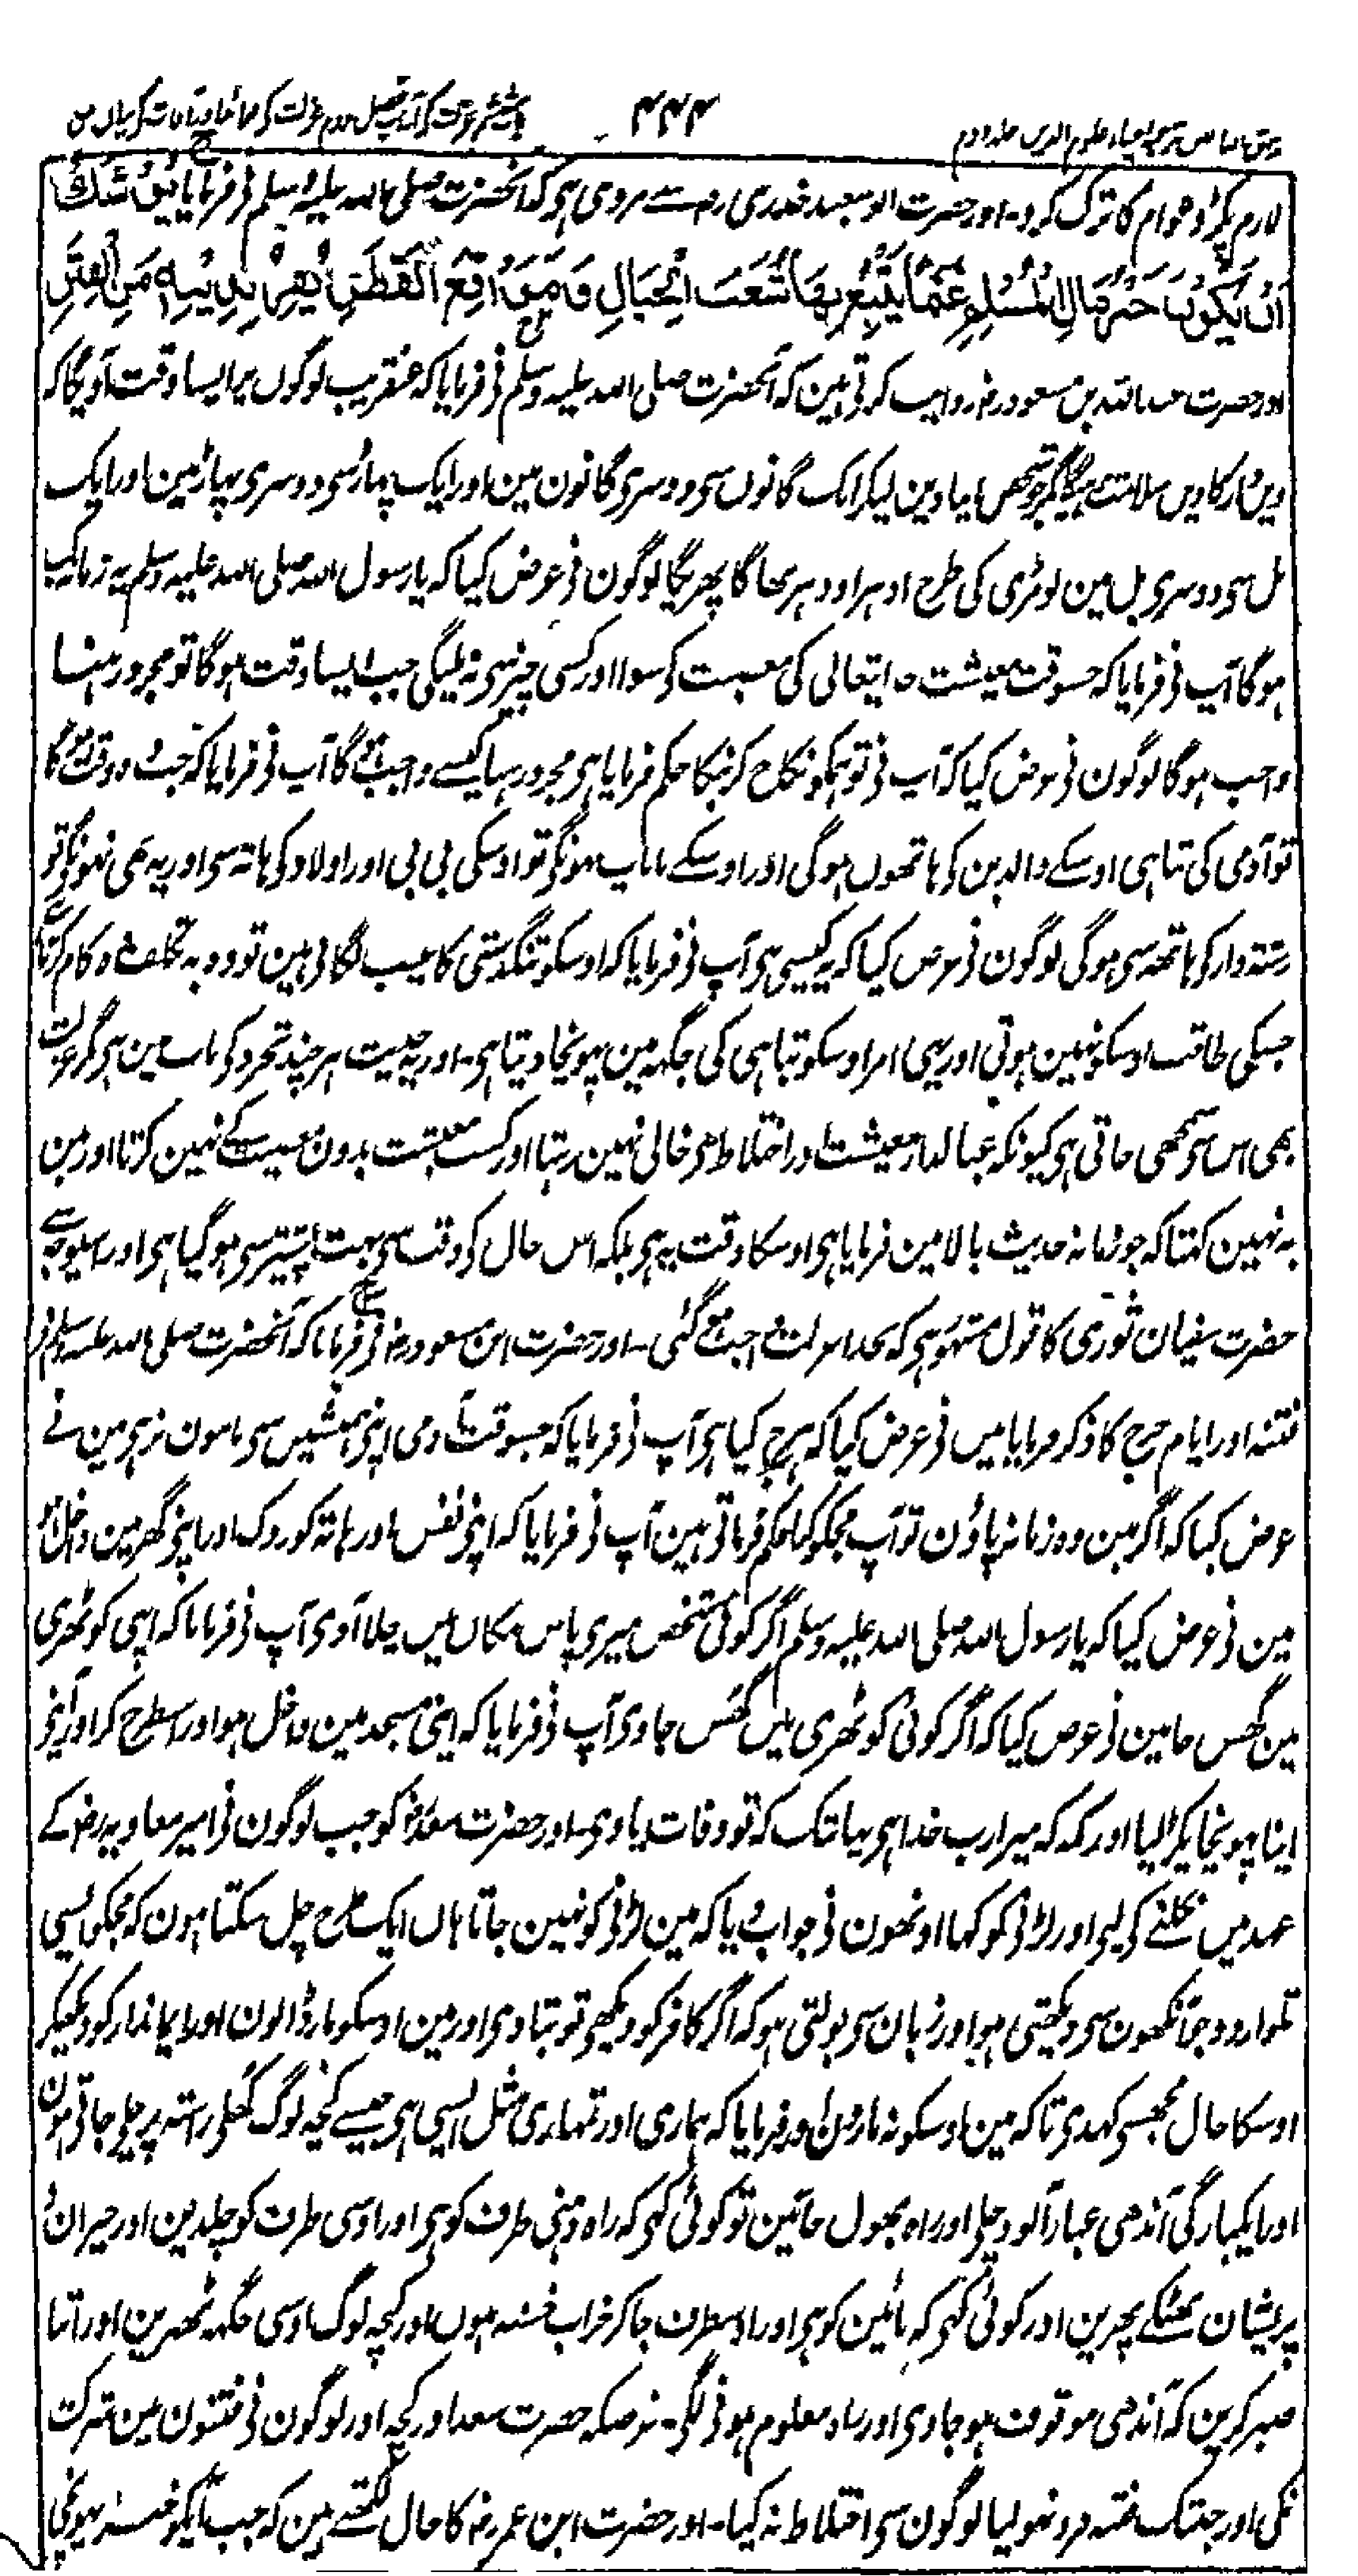 باب ششم عزلت کے آداب فصل دوم عزلت کی
۴۴۴
علوم الدین جلد دوم
لازم پکڑو عوام کا ترک کرو۔ اور حضرت ابو سعید خدری رض سے مروی ہی کہ آنحضرت صلی اللہ علیہ وسلم نی فرمایا یُوْشَکُ
اَنْ یَکُوْنَ خَیْرُ مَالِ الْمُسْلِمِ غَنَمًا یَتَّبِعُ بِهَا شَعَفَ الْجِبَالِ وَمَوَاقِعَ الْقَطْرِ یَفِرُّ بِدِیْنِهٖ مِنَ الْفِتَنِ
اور حضرت عبداللہ بن مسعود رض روایت کرتی ہین کہ آنحضرت صلی اللہ علیہ وسلم نی فرمایا کہ عنقریب لوگوں پر ایسا وقت آویگا کہ
دیندار کا دین سلامت نہ رہیگا مگر جو شخص اپنا دین لیکر ایک گانوں سی دوسری گانون مین اور ایک پہاڑ سی دوسری پہاڑ مین اور ایک
بل سی دوسری بل مین لومڑی کی طرح ادہر اودہر بھاگا پھریگا لوگون نی عرض کیا کہ یا رسول اللہ صلی اللہ علیہ وسلم یہ زمانہ کب
ہوگا آپ نی فرمایا کہ جسوقت معیشت خدایتعالی کی معصیت کی سوا اور کسی چیز سی نہ ملیگی جب ایسا وقت ہوگا تو مجرد رہنا
واجب ہوگا لوگون نی عرض کیا کہ آپ نی تو ہمکو نکاح کرنیکا حکم فرمایا ہی مجرد رہنا کیسے واجب ہوگا آپ نی فرمایا کہ جب وہ وقت ہوگا
تو آدمی کی تباہی اوسکے والدین کی ہاتھوں ہوگی اور اوسکے ماباپ نہونگی تو اوسکی بی بی اور اولاد کی ہاتہ سی اور یہ بھی نہونگی تو
رشتہ دار کی ہاتھہ سی ہوگی لوگون نی عرض کیا کہ یہ کیسی ہی آپ نی فرمایا کہ اوسکو تنگدستی کا عیب لگاتی ہین تو وہ بہ تکلف وہ کام کرتا ہی
جسکی طاقت اوسکو نہین ہوتی اور یہی امر اوسکو تباہی کی جگہہ مین پہونچا دیتا ہی۔ اور یہ حدیث ہر چند تجرد کی باب مین ہی مگر عزلت
بھی اس سی سمجھی جاتی ہی کیونکہ عیالدار معیشت اور اختلاط سی خالی نہین رہتا اور کسب معیشت بدون معصیت کے نہین کرتا اور مین
یہ نہین کہتا کہ جو زمانہ حدیث بالا مین فرمایا ہی اوسکا وقت یہ ہی بلکہ اس حال کی وقت سی بہت پیشتر سی ہوگیا ہی اور اسیوجہ سے
حضرت سفیان ثوری کا قول مشہور ہی کہ بخدا عزلت واجب ہوگئی۔ اور حضرت ابن مسعود رض نی فرمایا کہ آنحضرت صلی اللہ علیہ وسلم نی
فتنہ اور ایام ہرج کا ذکر فرمایا میں نی عرض کیا کہ ہرج کیا ہی آپ نی فرمایا کہ جسوقت آدمی اپنی ہمنشین سی مامون نرہی مین نے
عرض کیا کہ اگر مین وہ زمانہ پاؤن تو آپ مجکو کیا حکم فرماتی ہین آپ نی فرمایا کہ اپنی نفس اور ہاتہ کو روک اور اپنی گھر مین داخل ہو
مین نی عرض کیا کہ یا رسول اللہ صلی اللہ علیہ وسلم اگر کوئی شخص میری پاس مکان میں چلا آوی آپ نی فرمایا کہ اپنی کوٹھری
مین گھس جا مین نی عرض کیا کہ اگر کوئی کوٹھری میں گھس جاوی آپ نی فرمایا کہ اپنی مسجد مین داخل ہو اور اسطرح کر اور آپنی
اپنا پہونچا پکڑ لیا اور کہہ کہ میرا رب خدا ہی یہانتک کہ تو وفات پاوی۔ اور حضرت سعد رض کو جب لوگون نی امیر معاویہ رض کے
عہد میں نکلنے کی لیی اور لڑنی کو کہا اونھون نی جواب دیا کہ مین لڑنی کو نہین جاتا ہاں ایک طرح چل سکتا ہون کہ مجکو ایسی
تلوار دو جو آنکھون سی دیکھتی ہو اور زبان سی بولتی ہو کہ اگر کافر کو دیکھی تو بتادی اور مین اوسکو مار ڈالون اور ایماندار کو دیکھکر
اوسکا حال مجھسی کہدی تاکہ مین اوسکو نہ مارون اور فرمایا کہ ہماری اور تمہاری مثل ایسی ہی جیسے کچھہ لوگ کھلی راستہ پر چلی جاتی ہون
اور ایکبارگی آندھی غبار آلود چلی اور راہ بھول جائین تو کوئی کہی کہ راہ دہنی طرف کو ہی اور اوسی طرف کو چلدین اور حیران و
پریشان بھٹکے پھرین اور کوئی کہی کہ بائین کو ہی اور اوسطرف جا کر خراب خستہ ہوں اور کچہ لوگ اوسی جگہہ ٹھہرین اور اتنا
صبر کرین کہ آندھی موقوف ہو جاوی اور راہ معلوم ہونی لگی۔ غرضکہ حضرت سعد اور کچہ اور لوگون نی فتنون مین شرکت
نکی اور جبتک فتنہ فرو نہولیا لوگون سی اختلاط نہ کیا۔ اور حضرت ابن عمر رض کا حال لکھتے ہین کہ جب آپکو خبر پہونچی